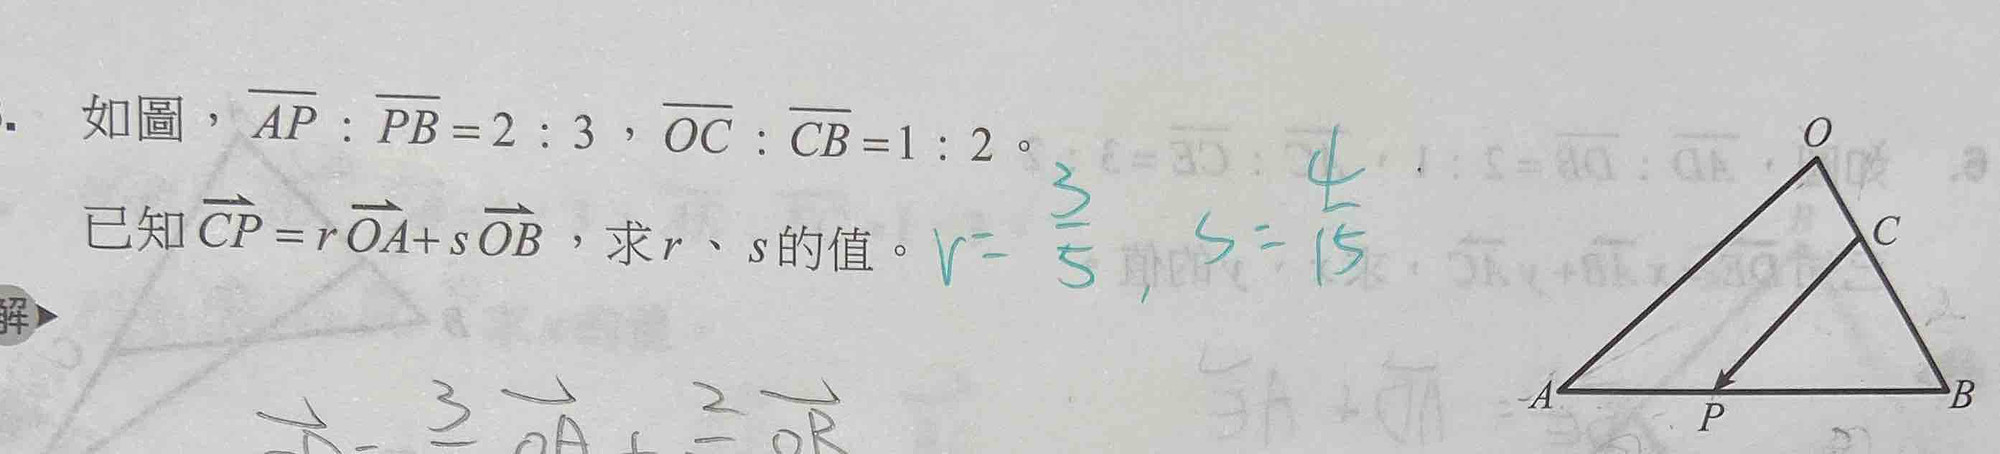 如圖，AP : PB = 2 : 3，OC : CB = 1 : 2。
已知 CP = r OA + s OB，求 r、s 的值。 r = 3/5 , s = 4/15
解
3 OA + 2 OB
O
C
A
P
B